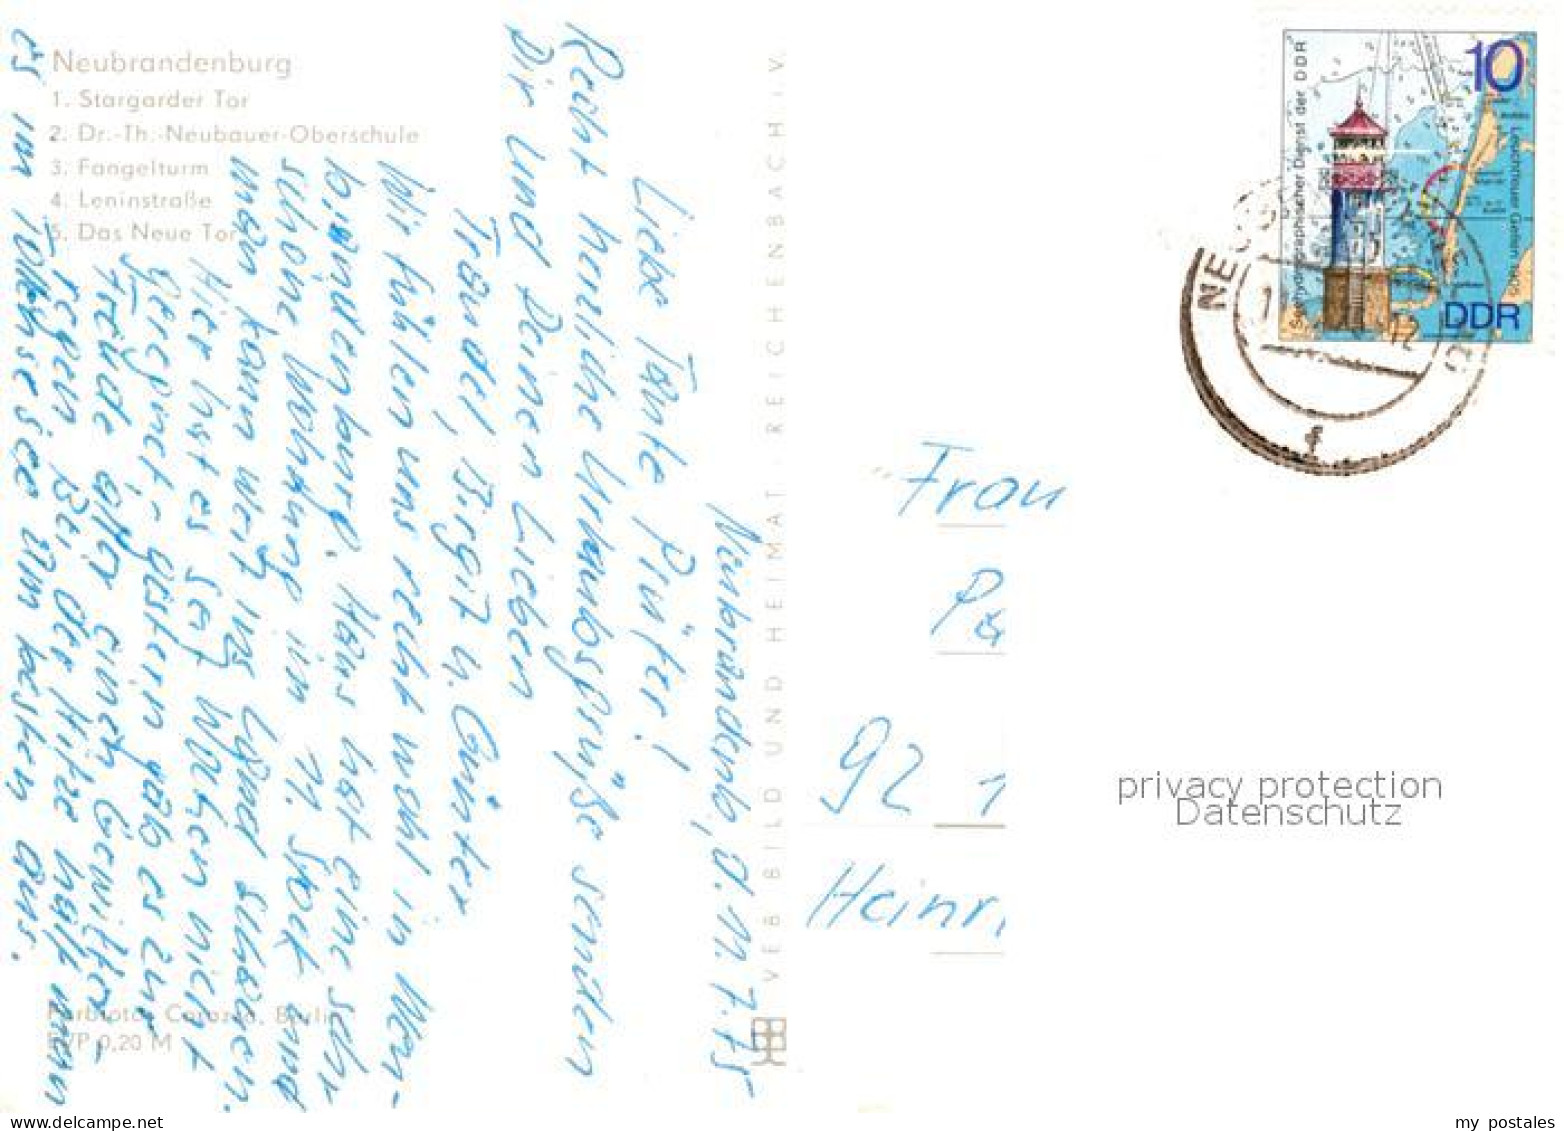 Neubrandenburg
1. Stargarder Tor
2. Dr.-Th.-Neubauer-Oberschule
3. Fangelturm
4. Leninstraße
5. Das Neue Tor
Neubrandenb., d. 11.7.75
Liebe Tante Pinter!
Recht herzliche Urlaubsgrüße senden
Dir und Deinen Lieben
Traudel, Birgit u. Günter
Wir fühlen uns recht wohl in Neu-
brandenburg. Haus hat eine sehr
schöne Wohnung im 11. Stock und
man kann weit ins Land schauen.
Hier hat es seit Wochen nicht
geregnet, gestern gab es zur
Freude aller einen Gewitter-
regen. Bei der Hitze hält man
es im Tollensesee am besten aus.
Farbfotos Corazza, Berlin
EVP 0,20 M
VEB BILD UND HEIMAT, REICHENBACH I. V.
Seehydrographischer Dienst der DDR
10
Leuchtfeuer Gellen 1905
DDR
f
Frau
92 1
Heinr
privacy protection
Datenschutz
my postales